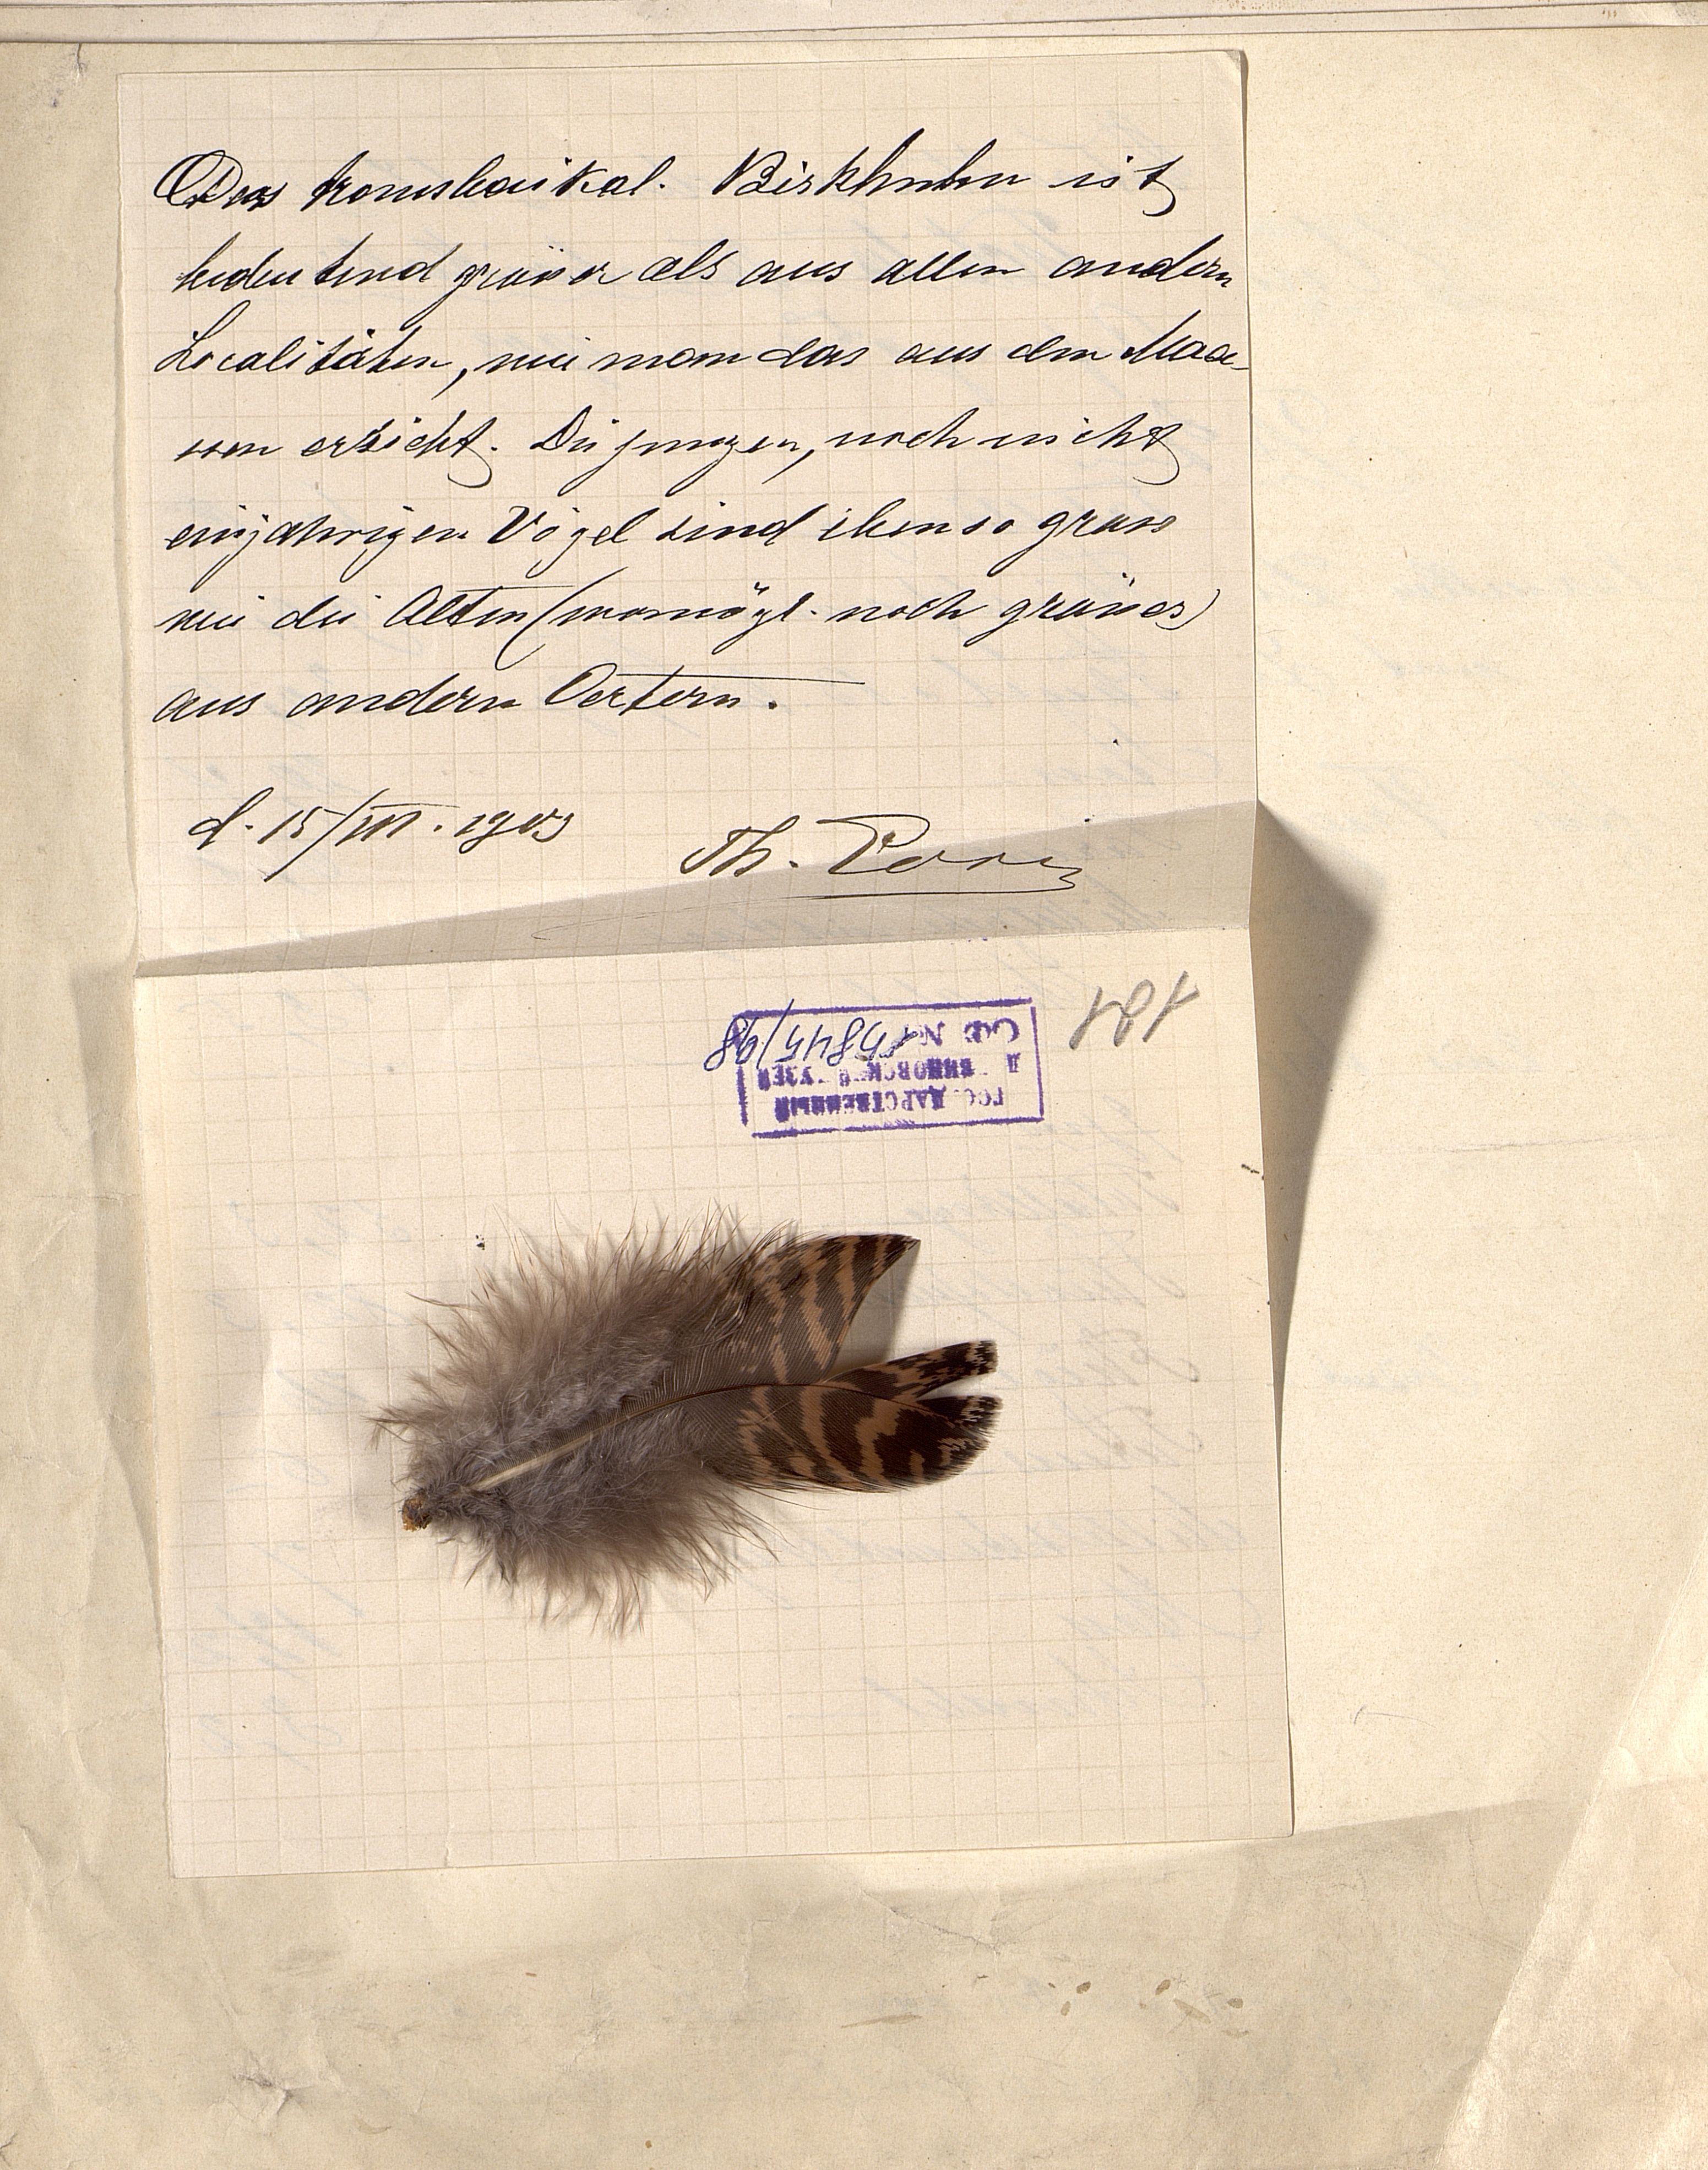 Das transbaikal. Birkhuhn ist
bedeutend grösser als aus allen andern
Localitäten, wie man das aus den Maas-
sen ersicht. Die jungen, noch nicht
einjährigen Vögel sind ebenso gross
wie die Alten (womögl. noch grösser)
aus andern Oertern.
d. 15/III. 1903
Th.
181
ГОСУДАРСТВЕННЫЙ
ДАРВИНОВСКИЙ МУЗЕЙ
ОФ № 15845/98